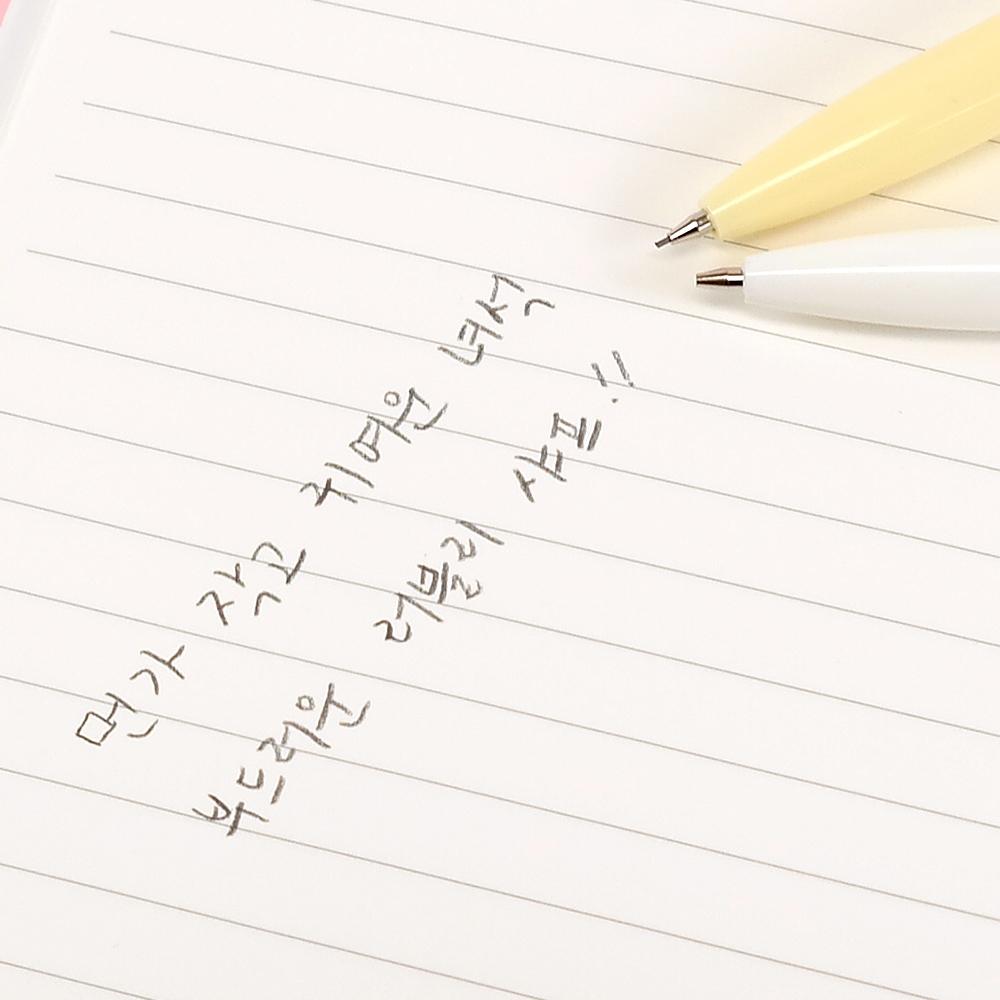 먼가 작고 귀여운 녀석
부드러운 러블리 샤프!!